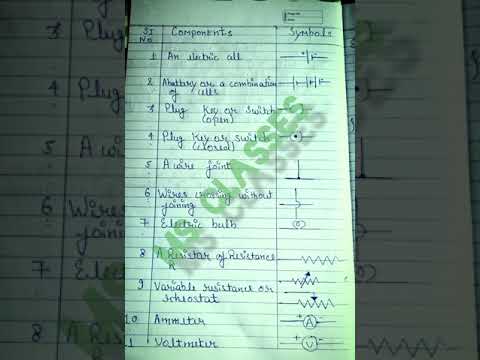 Sl No. Components Symbols
1 An electric cell
2 A battery or a combination
of cells
3 Plug Key or switch
(open)
4 Plug Key or switch
(closed)
5 A wire joint
6 Wires crossing without
joining
7 Electric bulb
8 A Resistor of Resistance
R
9 Variable resistance or
rheostat
10 Ammeter
+ A -
Voltmeter
+ V -
MS CLASSES
3 Plug
4 Plug
5 A w
6 Wires
joining
7 Elect
8 A Resist